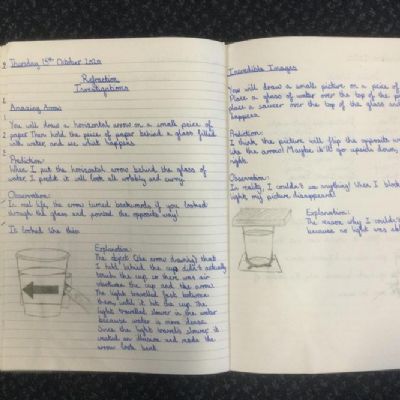 Thursday 15th October 2020
Refraction
Investigations
Amazing Arrow
You will draw a horizontal arrow on a small peice of
paper. Then hold the peice of paper behind a glass filled
with water and see what happens.
Prediction:
When I put the horizontal arrow behind the glass of
water I predict it will look all wobbly and
Observation:
In real life, the arrow turned backwards if you looked
through the glass and pointed the opposite way!
It looked like this:
Explanation:
The object (the arrow drawing) that
I held which the cup didn't actually
touch the cup so there was air
between the cup and the arrow.
The light travelled fast between
them, until it hit the cup. The
light travelled slower in the water
because water is more dense.
Since the light travels slower it
created an illusion and made the
arrow look bent.
Incredible Images
You will draw a small picture on a peice of
Place a glass of water over the top of the
place a saucer over the top of the glass and
happens.
Prediction:
I think the picture will flip the opposite
like the arrow! Maybe it'll go upside down,
right.
Observation:
In reality, I couldn't see anything! When I
light, my picture disappeared!
Explanation:
The reason why I couldn't
because no light was